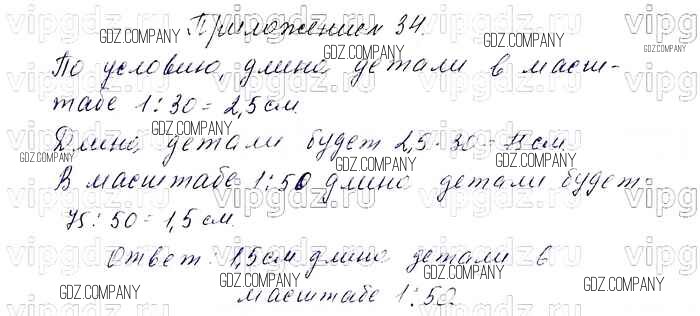 Приложение 34.
По условию, длина детали в масш-
табе 1:30 = 2,5 см.
Длина, детали будет 2,5 · 30 = 75 см.
В масштабе 1:50 длина детали будет:
75 : 50 = 1,5 см.
Ответ: 1,5 см длина детали в
масштабе 1:50.